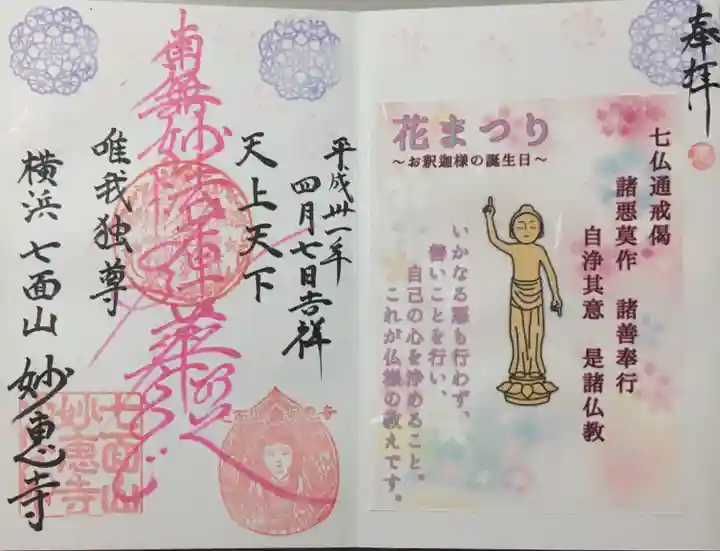 奉拝
七仏通戒偈
諸悪莫作　諸善奉行
自浄其意　是諸仏教
花まつり
～お釈迦様の誕生日～
いかなる悪も行わず、
善いことを行い、
自己の心を浄めること。
これが仏様の教えです。
平成卅一年
四月七日吉祥
天上天下
南無妙法蓮華経
唯我独尊
横浜 七面山 妙恵寺
七面山
妙恵寺